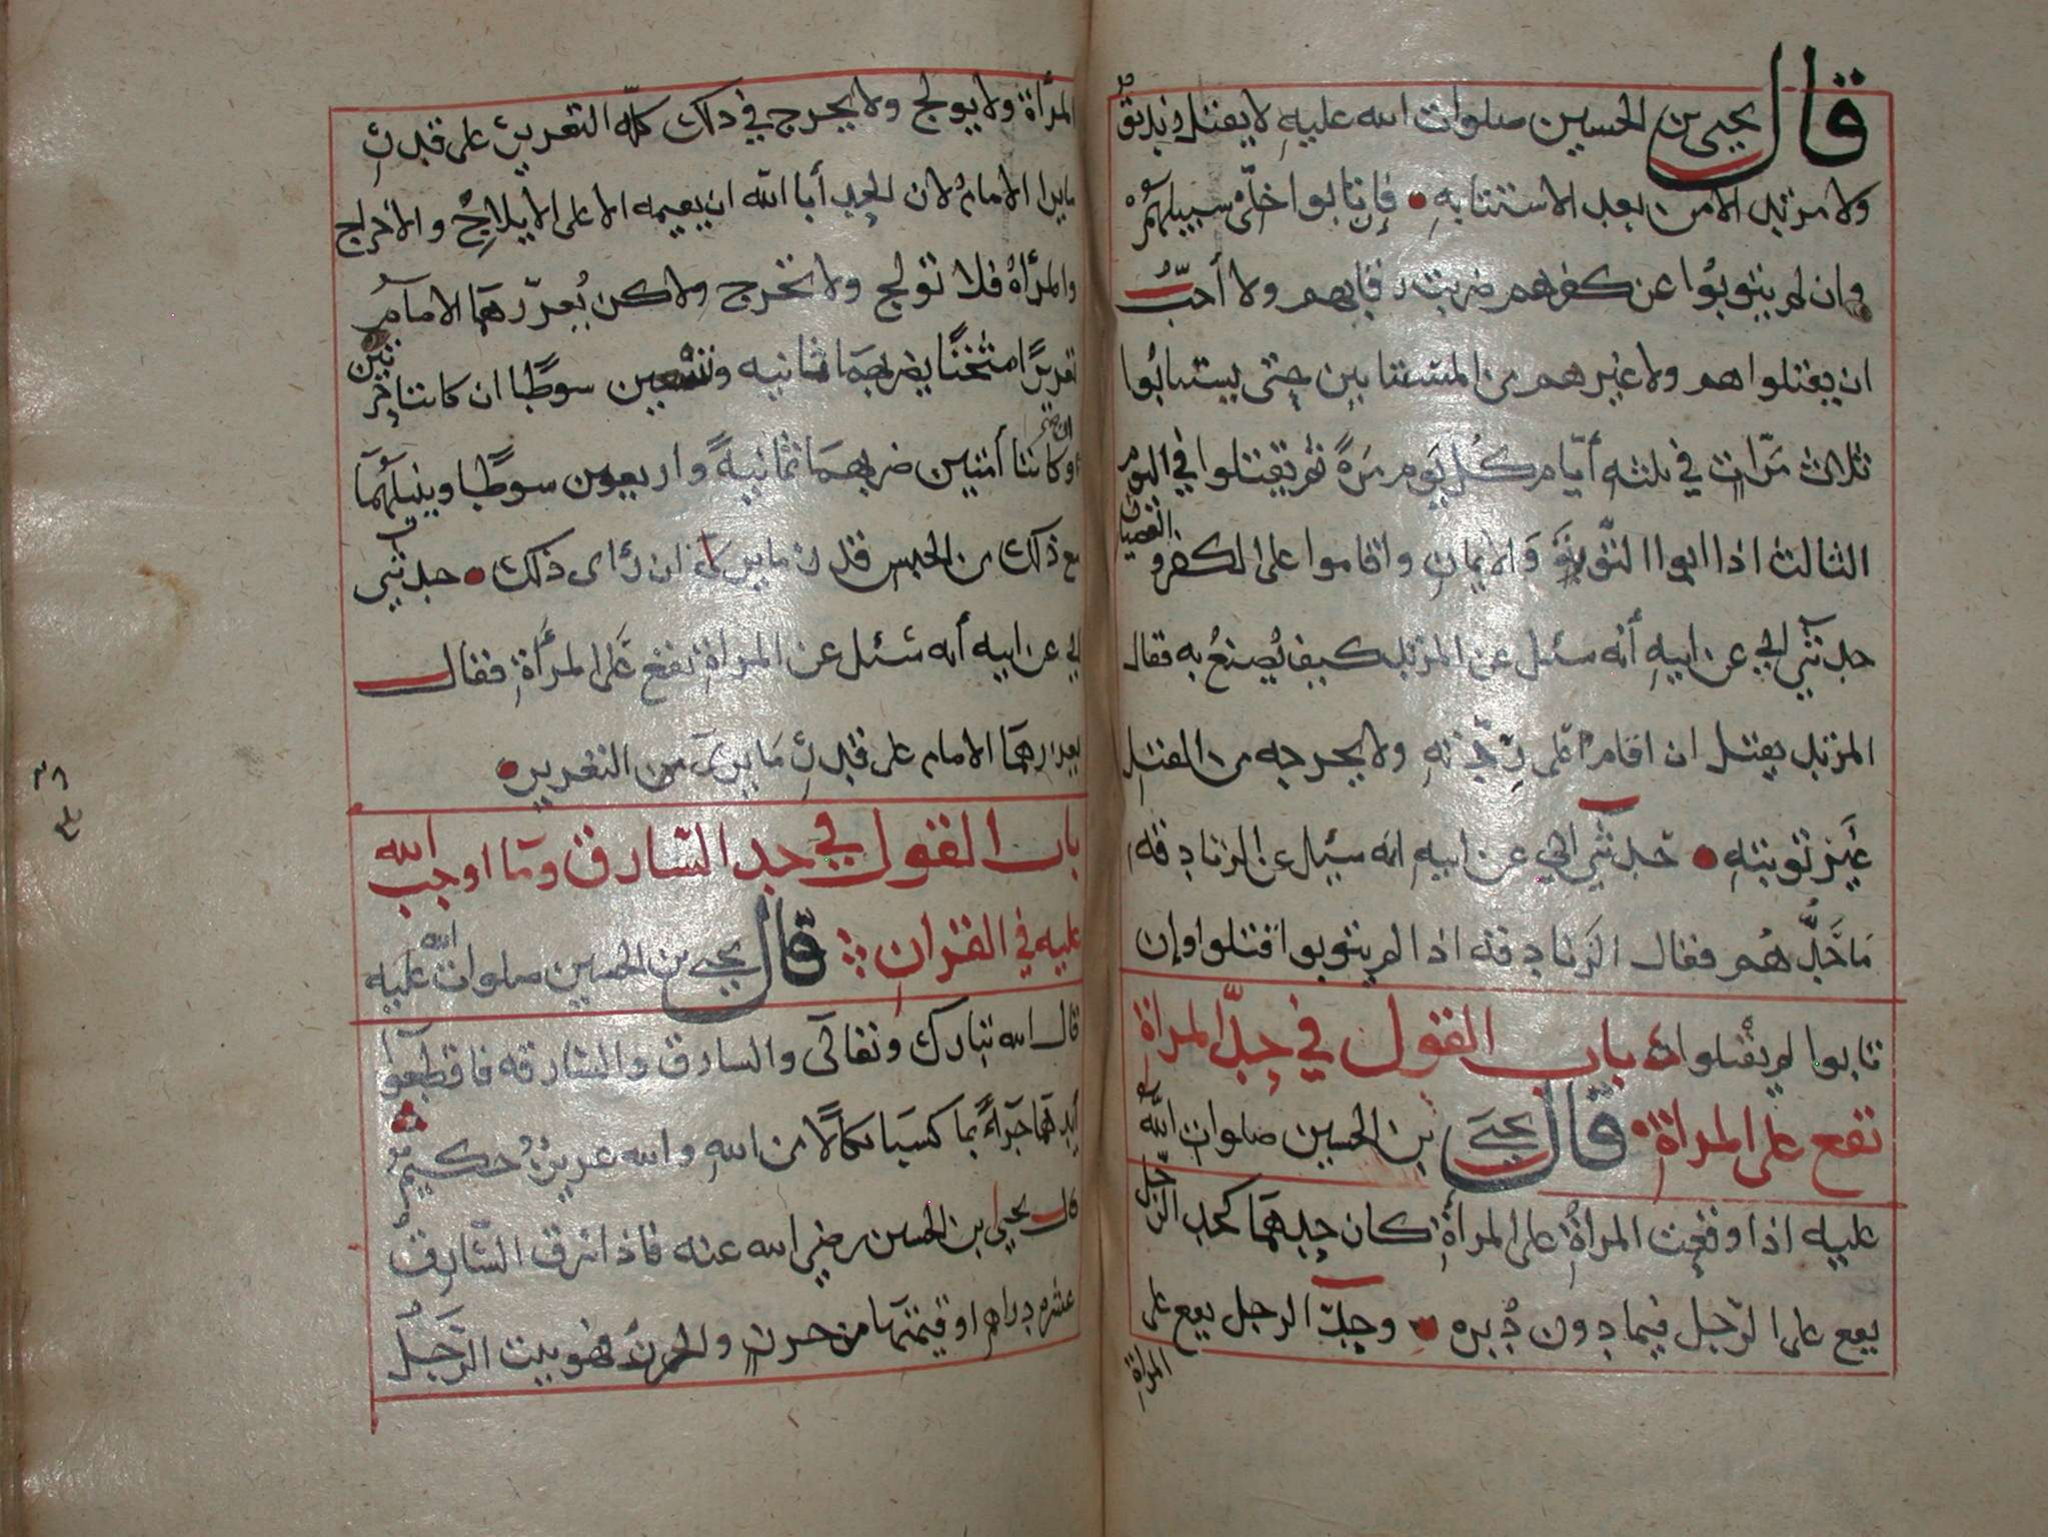 قال يحيى بن الحسين صلوات الله عليه لا يقتل زنديق
ولا مرتد الا من بعد الاستتابه فان تابوا خلى سبيلهم
وان لم يتوبوا عن كفرهم ضربت رقابهم ولا أحب
ان يقتلوا هم ولا غيرهم من المستتابين حتى يستتابوا
ثلاث مرات في ثلثه أيام كل يوم مرة ثم يقتلوا في اليوم
الثالث اذا ابوا التوبة والايمان واقاموا على الكفر و
العصيان
حدثني ابي عن ابيه أنه سئل عن المرتد كيف يصنع به فقال
المرتد يقتل ان اقام على ردته ولا يخرجه من القتل
غير توبته حدثني ابي عن ابيه انه سئل عن الزنادقه
ما حدهم فقال الزنادقه اذا لم يتوبوا قتلوا وان
تابوا لم يقتلوا باب القول في حد المرأة
تقع على المرأة قال يحيى بن الحسين صلوات الله
عليه اذا وقعت المرأة على المرأة كان حدهما كحد الرجل
يقع على الرجل فيما دون دبره وحد الرجل يقع على
المرأة
المرأة ولا يولج ولا يخرج في ذلك كله التعزير على قدر
ما يرا الامام لان الحد أبا الله ان يقيمه الا على الايلاج والاخراج
والمرأة فلا تولج ولا تخرج ولاكن يعزرهما الامام
تعزيرًا مثخنًا يضربهما ثمانيه وتسعين سوطًا ان كانتا حرتين
او كانتا أمتين ضربهما ثمانية واربعون سوطًا وينيلهما
مع ذلك من الحبس قدر ما يرى ان رأى ذلك حدثني
ابي عن ابيه أنه سئل عن المرأة تقع على المرأة فقال
يعزرهما الامام على قدر ما يرى من التعزير
باب القول في حد السارق وما اوجب الله
عليه في القران قال يحيى بن الحسين صلوات الله عليه
قال الله تبارك وتعالى والسارق والسارقه فاقطعوا
أيديهما جزاءً بما كسبا نكالًا من الله والله عزيز حكيم
قال يحيى ابن الحسين رضي الله عنه فاذا سرق السارق
عشره دراهم او قيمتها من حرز والحرز فهو بيت الرجل